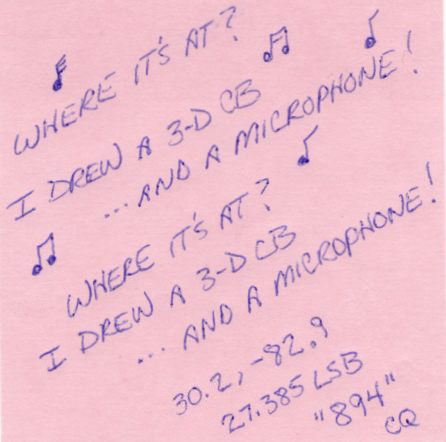 WHERE IT'S AT?
I DREW A 3-D CB
...AND A MICROPHONE!
WHERE IT'S AT?
I DREW A 3-D CB
... AND A MICROPHONE!
30.2, -82.9
27.385 LSB
"894"
CQ